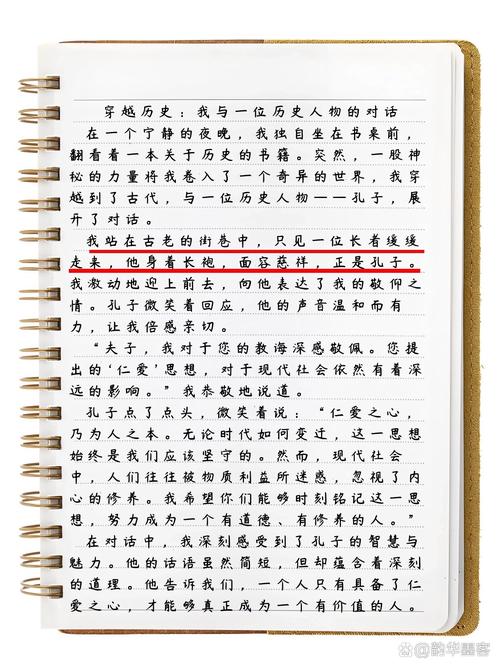 穿越历史：我与一位历史人物的对话
在一个宁静的夜晚，我独自坐在书桌前，
翻看着一本关于历史的书籍。突然，一股神
秘的力量将我卷入了一个奇异的世界，我穿
越到了古代，与一位历史人物——孔子，展
开了对话。
我站在古老的街巷中，只见一位长者缓缓
走来，他身着长袍，面容慈祥，正是孔子。
我激动地迎上前去，向他表达了我的敬仰之
情。孔子微笑着回应，他的声音温和而有
力，让我倍感亲切。
“夫子，我对于您的教诲深感敬佩。您提
出的‘仁爱’思想，对于现代社会依然有着深
远的影响。”我恭敬地说道。
孔子点了点头，微笑着说：“仁爱之心，
乃为人之本。无论时代如何变迁，这一思想
始终是我们应该坚守的。然而，现代社会
中，人们往往被物质利益所迷惑，忽视了内
心的修养。我希望你们能够时刻铭记这一思
想，努力成为一个有道德、有修养的人。”
在对话中，我深刻感受到了孔子的智慧与
魅力。他的话语虽然简短，但却蕴含着深刻
的道理。他告诉我们，一个人只有具备了仁
爱之心，才能够真正成为一个有价值的人。
韵华墨客